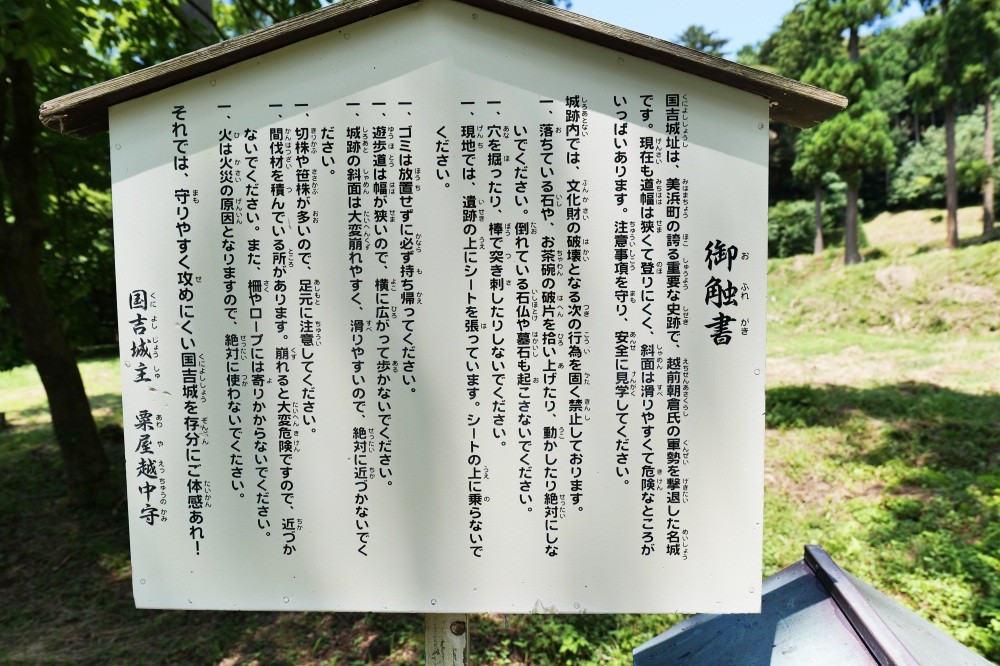 御触書
国吉城址は、美浜町の誇る重要な史跡で、越前朝倉氏の軍勢を撃退した名城
です。現在も道幅は狭くて登りにくく、斜面は滑りやすくて危険なところが
いっぱいあります。注意事項を守り、安全に見学してください。
城跡内では、文化財の破壊となる次の行為を固く禁止しております。
一 落ちている石や、お茶碗の破片を拾い上げたり、動かしたり絶対にしな
いでください。倒れている石仏や墓石も起こさないでください。
一 穴を掘ったり、棒で突き刺したりしないでください。
一 現地では、遺跡の上にシートを張っています。シートの上に乗らないで
ください。
一 ゴミは放置せずに必ず持ち帰ってください。
一 遊歩道は幅が狭いので、横に広がって歩かないでください。
一 城跡の斜面は大変崩れやすく、滑りやすいので、絶対に近づかないでく
ださい。
一 切株や笹株が多いので、足元に注意してください。
一 間伐材を積んでいる所があります。崩れると大変危険ですので、近づか
ないでください。また、柵やロープには寄りかからないでください。
一 火は火災の原因となりますので、絶対に使わないでください。
それでは、守りやすく攻めにくい国吉城を存分にご体感あれ！
国吉城主 粟屋越中守